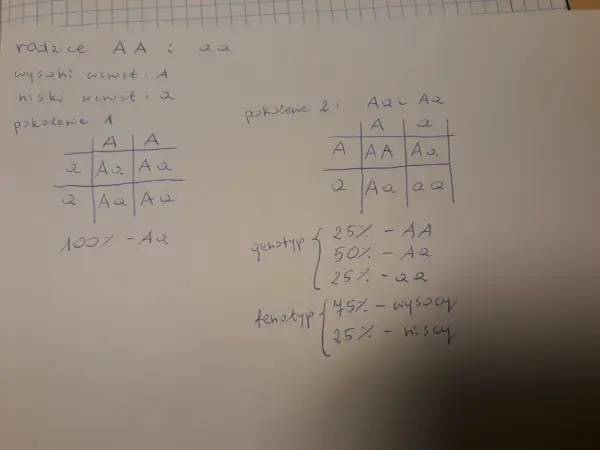 rodzice AA i aa
wysoki wzrost: A
niski wzrost: a
pokolenie 1
A A
a Aa Aa
a Aa Aa
100% - Aa
pokolenie 2: Aa Aa
A a
A AA Aa
a Aa aa
genotyp
25% - AA
50% - Aa
25% - aa
fenotyp
75% - wysocy
25% - niscy